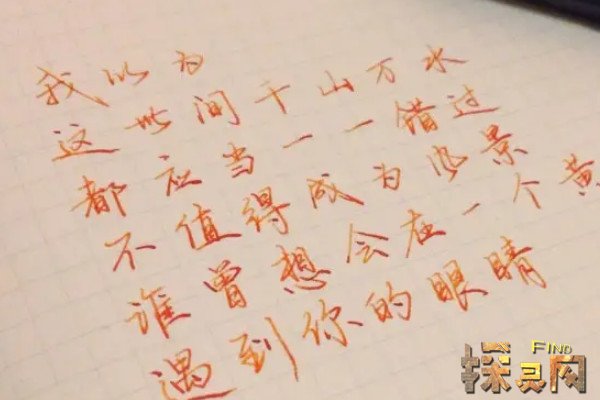 我以为
这世间千山万水
都应当一一错过
不值得成为风景
谁曾想会在一个黄
遇到你的眼睛
FIND
探灵网